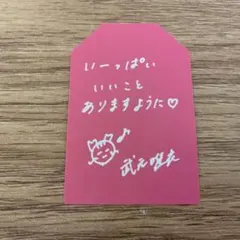 いーっぱい
いいこと
ありますように♡
♪
武元唯衣